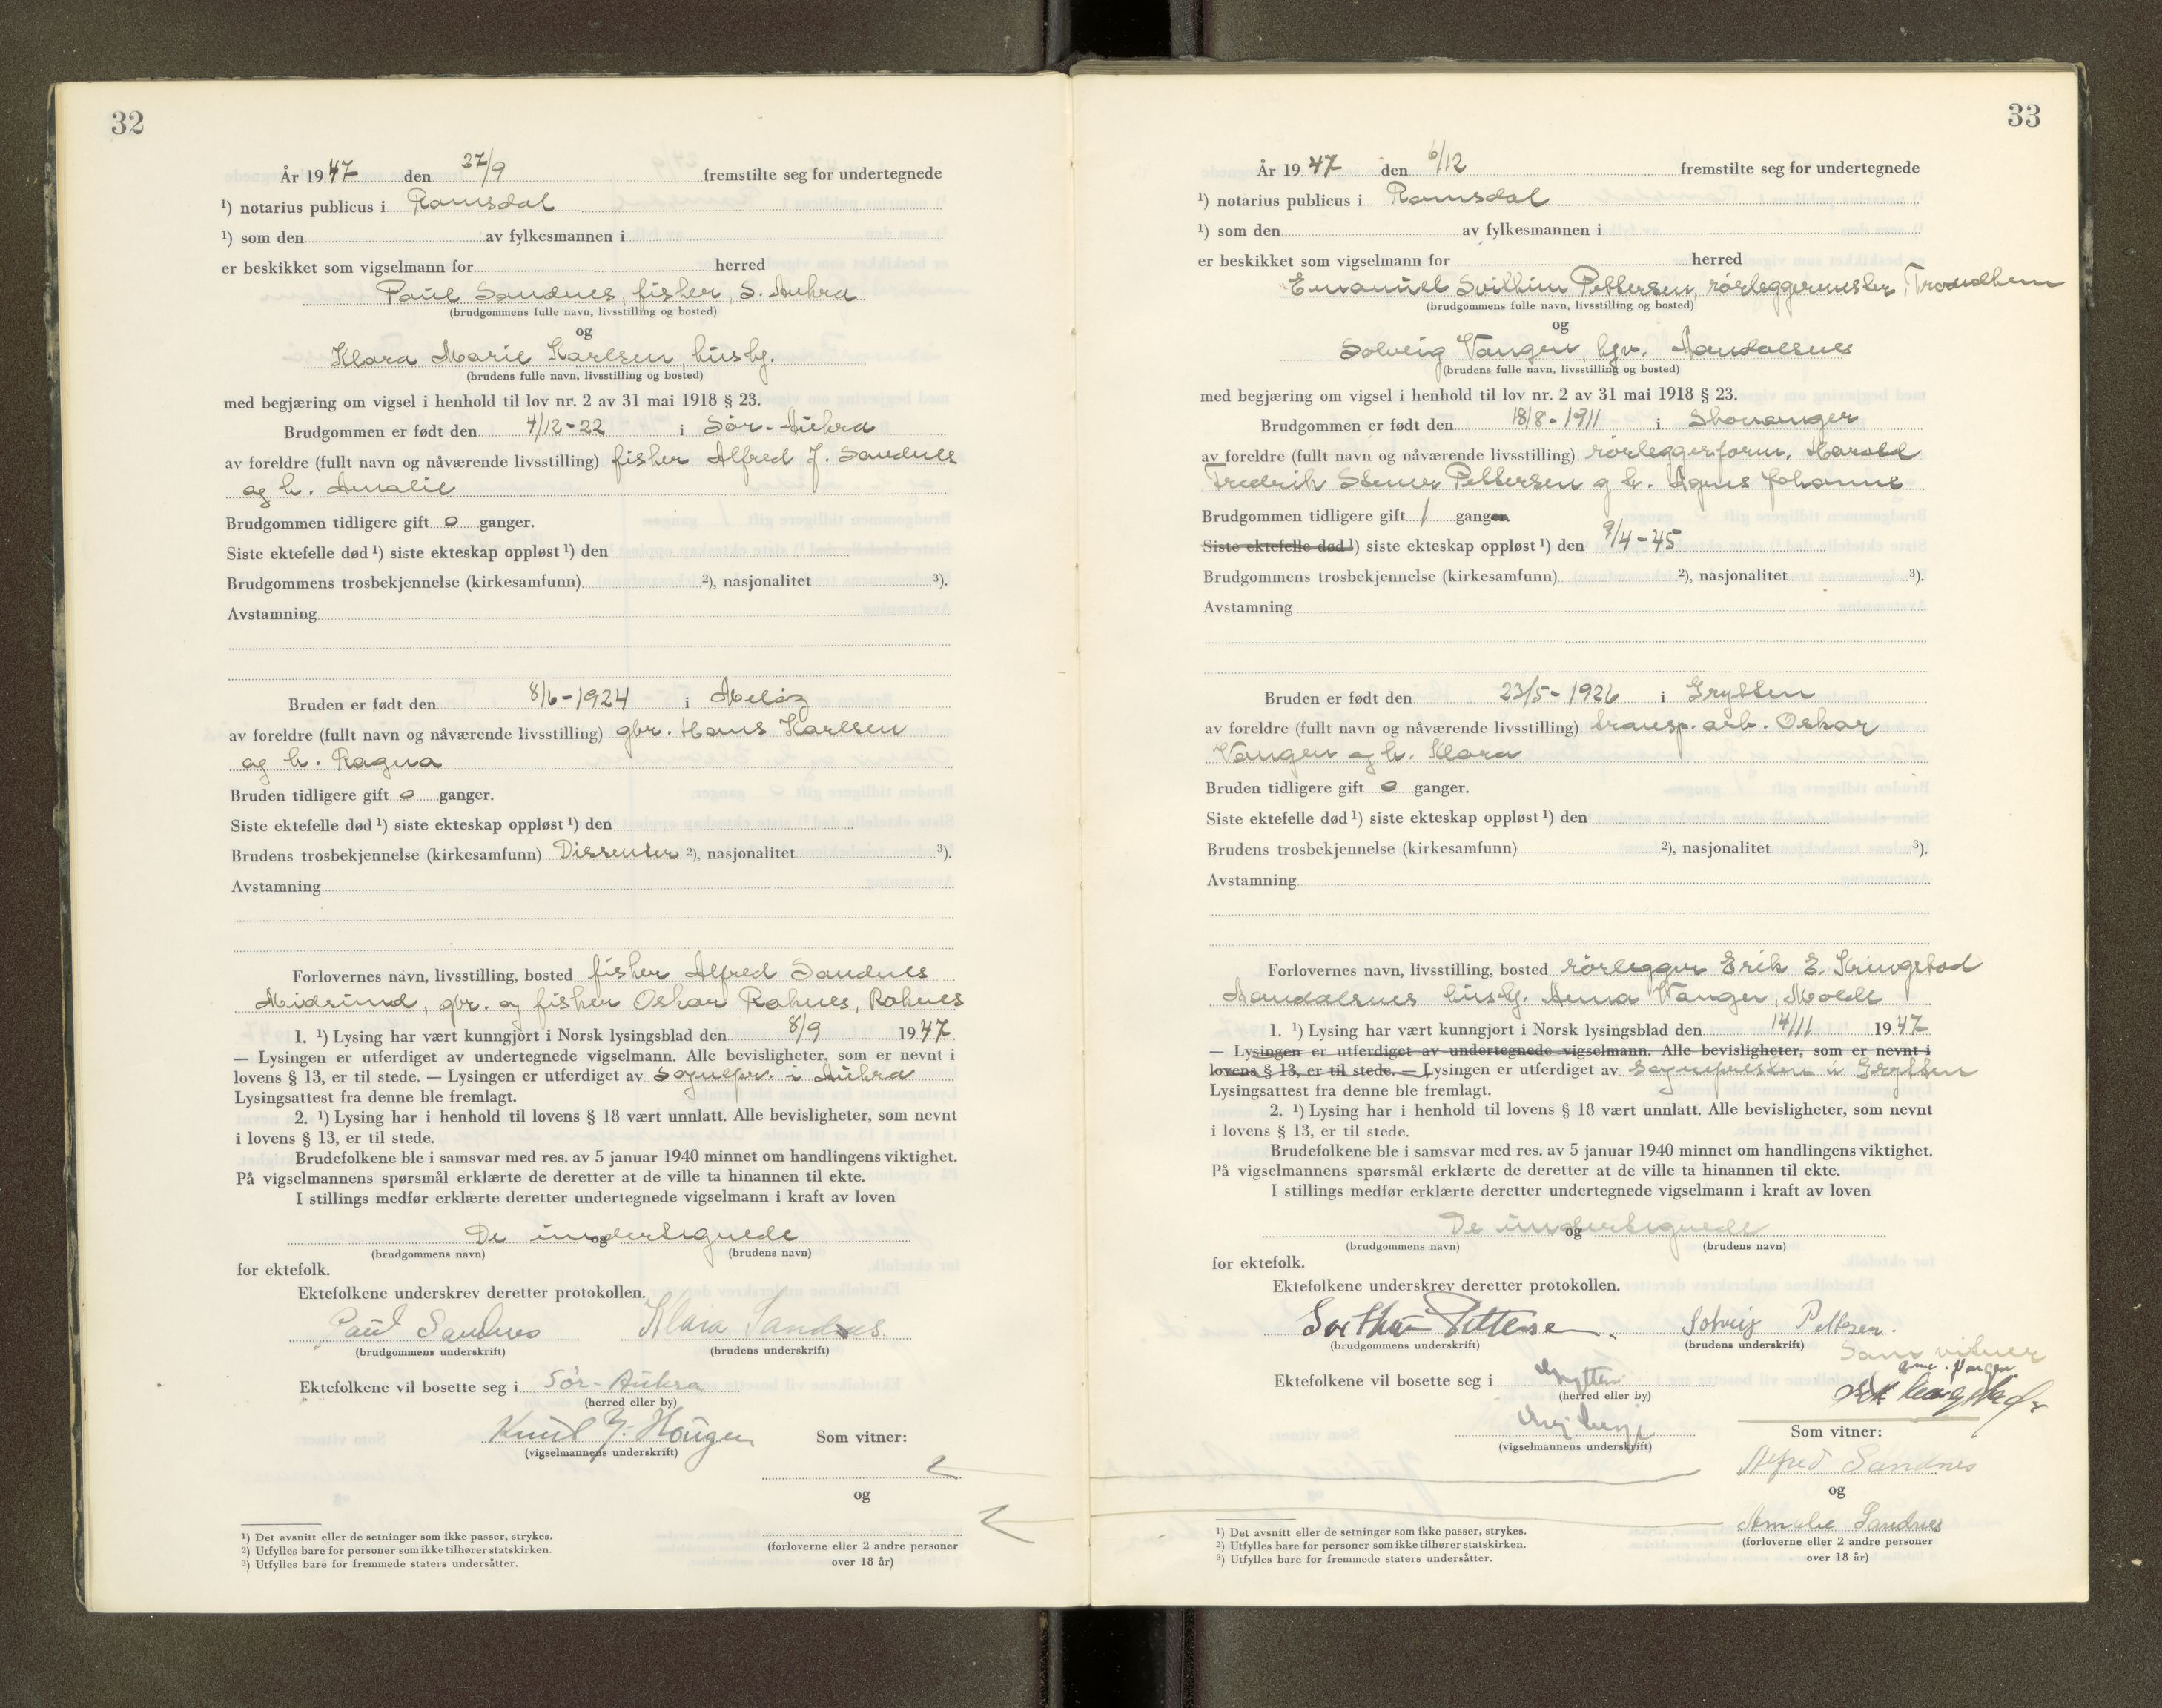 32
År 1947 den 27/9 fremstilte seg for undertegnede
¹) notarius publicus i Romsdal
¹) som den av fylkesmannen i
er beskikket som vigselmann for herred
Paul Sandnes, fisker, S. Aukra
(brudgommens fulle navn, livsstilling og bosted)
og
Klara Marie Karlsen, husbg.
(brudens fulle navn, livsstilling og bosted)
med begjæring om vigsel i henhold til lov nr. 2 av 31 mai 1918 § 23.
Brudgommen er født den 4/12-22 i Sør-Aukra
av foreldre (fullt navn og nåværende livsstilling) fisker Alfred J. Sandnes
og h. Amalie
Brudgommen tidligere gift 0 ganger.
Siste ektefelle død ¹) siste ekteskap oppløst ¹) den
Brudgommens trosbekjennelse (kirkesamfunn) ²), nasjonalitet ³).
Avstamning
Bruden er født den 8/6-1924 i Meløy
av foreldre (fullt navn og nåværende livsstilling) gbr. Hans Karlsen
og h. Ragna
Bruden tidligere gift 0 ganger.
Siste ektefelle død ¹) siste ekteskap oppløst ¹) den
Brudens trosbekjennelse (kirkesamfunn) Dissenter ²), nasjonalitet ³).
Avstamning
Forlovernes navn, livsstilling, bosted fisker Alfred Sandnes
Midsund, gbr. og fisker Oskar Raknes, Raknes
1. ¹) Lysing har vært kunngjort i Norsk lysingsblad den 8/9 1947
— Lysingen er utferdiget av undertegnede vigselmann. Alle bevisligheter, som er nevnt i
lovens § 13, er til stede. — Lysingen er utferdiget av Sognepr. i Aukra
Lysingsattest fra denne ble fremlagt.
2. ¹) Lysing har i henhold til lovens § 18 vært unnlatt. Alle bevisligheter, som nevnt
i lovens § 13, er til stede.
Brudefolkene ble i samsvar med res. av 5 januar 1940 minnet om handlingens viktighet.
På vigselmannens spørsmål erklærte de deretter at de ville ta hinannen til ekte.
I stillings medfør erklærte deretter undertegnede vigselmann i kraft av loven
De undertegnede
og
(brudgommens navn) (brudens navn)
for ektefolk.
Ektefolkene underskrev deretter protokollen.
Paul Sandnes Klara Sandnes
(brudgommens underskrift) (brudens underskrift)
Ektefolkene vil bosette seg i Sør-Aukra
(herred eller by)
Knut J. Hougen Som vitner:
(vigselmannens underskrift)
og
¹) Det avsnitt eller de setninger som ikke passer, strykes.
²) Utfylles bare for personer som ikke tilhører statskirken.
³) Utfylles bare for fremmede staters undersåtter.
(forloverne eller 2 andre personer
over 18 år)
33
År 1947 den 6/12 fremstilte seg for undertegnede
¹) notarius publicus i Romsdal
¹) som den av fylkesmannen i
er beskikket som vigselmann for herred
Emanuel Svithun Pettersen, rørleggermester, Trondheim
(brudgommens fulle navn, livsstilling og bosted)
og
Solveig Vangen, hjv. Aandalsnes
(brudens fulle navn, livsstilling og bosted)
med begjæring om vigsel i henhold til lov nr. 2 av 31 mai 1918 § 23.
Brudgommen er født den 18/8-1911 i Stavanger
av foreldre (fullt navn og nåværende livsstilling) rørleggerform. Harald
Fredrik Stener Pettersen og h. Agnes Johanne
Brudgommen tidligere gift 1 gang
Siste ektefelle død ¹) siste ekteskap oppløst ¹) den 9/4-45
Brudgommens trosbekjennelse (kirkesamfunn) ²), nasjonalitet ³).
Avstamning
Bruden er født den 23/5-1926 i Grytten
av foreldre (fullt navn og nåværende livsstilling) transp. arb. Oskar
Vangen og h. Klara
Bruden tidligere gift 0 ganger.
Siste ektefelle død ¹) siste ekteskap oppløst ¹) den
Brudens trosbekjennelse (kirkesamfunn) ²), nasjonalitet ³).
Avstamning
Forlovernes navn, livsstilling, bosted rørlegger Erik E. Kringstad
Aandalsnes husbg. Anna Vangen, Molde
1. ¹) Lysing har vært kunngjort i Norsk lysingsblad den 14/11 1947
— Lysingen er utferdiget av undertegnede vigselmann. Alle bevisligheter, som er nevnt i
lovens § 13, er til stede. — Lysingen er utferdiget av Sognepresten i Grytten
Lysingsattest fra denne ble fremlagt.
2. ¹) Lysing har i henhold til lovens § 18 vært unnlatt. Alle bevisligheter, som nevnt
i lovens § 13, er til stede.
Brudefolkene ble i samsvar med res. av 5 januar 1940 minnet om handlingens viktighet.
På vigselmannens spørsmål erklærte de deretter at de ville ta hinannen til ekte.
I stillings medfør erklærte deretter undertegnede vigselmann i kraft av loven
De undertegnede
og
(brudgommens navn) (brudens navn)
for ektefolk.
Ektefolkene underskrev deretter protokollen.
Svithun Pettersen. Solveig Pettersen.
(brudgommens underskrift) (brudens underskrift)
Som vitner
Vangen
Ektefolkene vil bosette seg i Grytten
(herred eller by)
(vigselmannens underskrift)
Som vitner:
Alfred Sandnes
og
Amalie Sandnes
¹) Det avsnitt eller de setninger som ikke passer, strykes.
²) Utfylles bare for personer som ikke tilhører statskirken.
³) Utfylles bare for fremmede staters undersåtter.
(forloverne eller 2 andre personer
over 18 år)